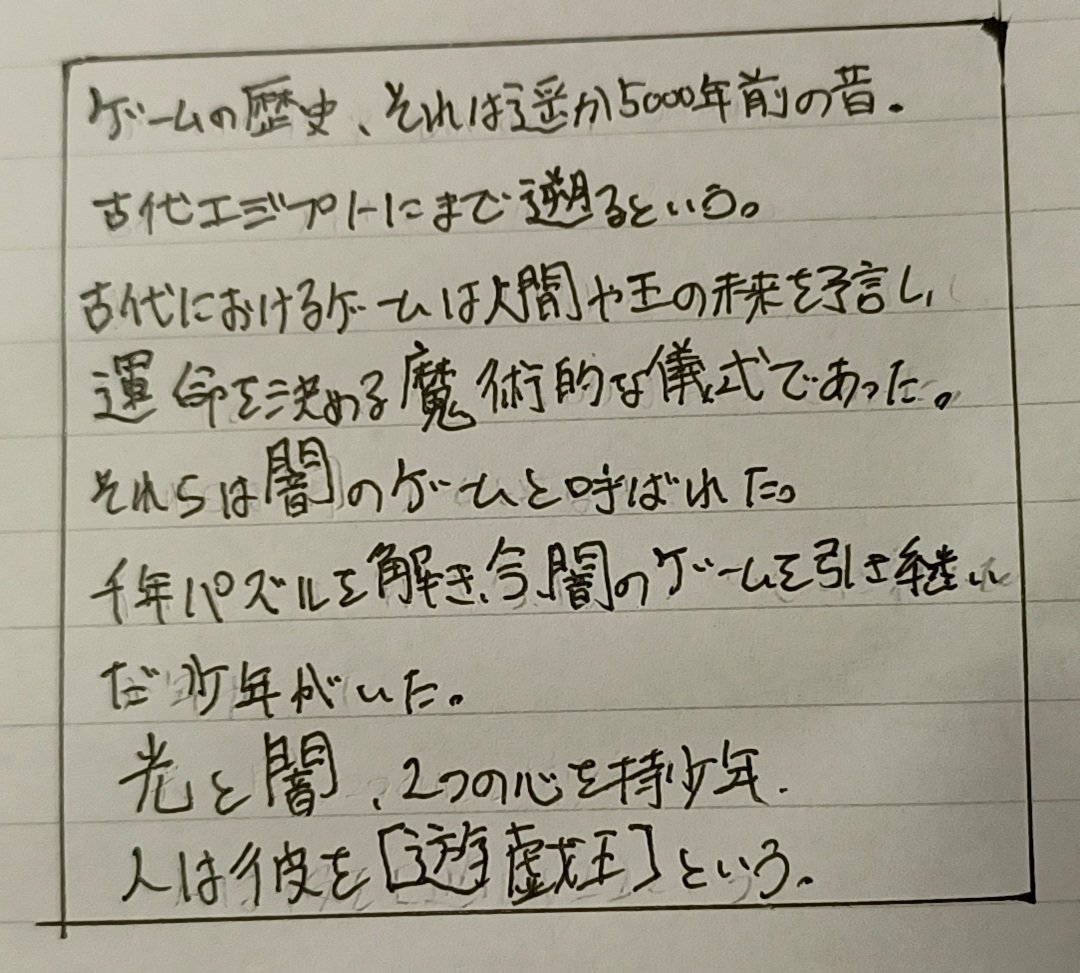 ゲームの歴史、それは遥か5000年前の昔。
古代エジプトにまで遡るという。
古代におけるゲームは人間や王の未来を予言し、
運命を決める魔術的な儀式であった。
それらは闇のゲームと呼ばれた。
千年パズルを解き、今、闇のゲームを引き継い
だ少年がいた。
光と闇、2つの心を持少年.
人は彼を[遊戯王]という。